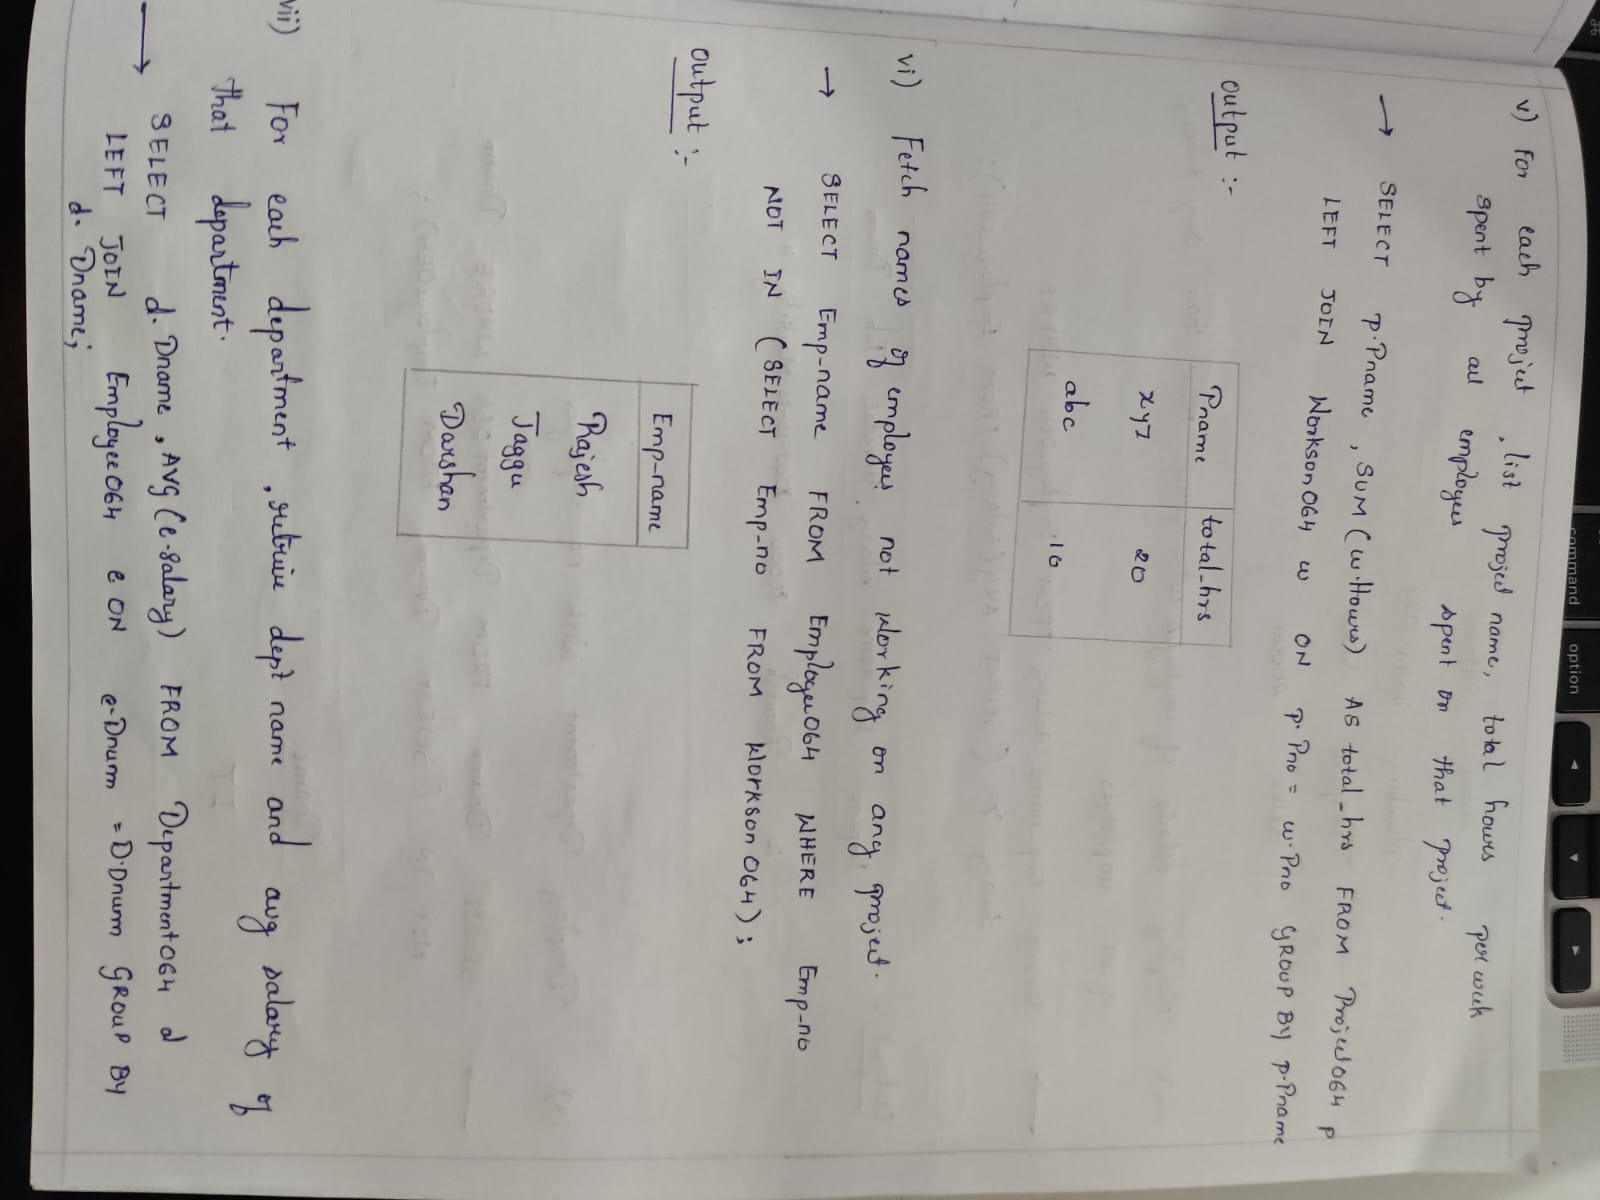 command
option
v) For each project, list project name, total hours per week
spent by all employees spent on that project.
→ SELECT p.Pname, SUM(w.Hours) AS total_hrs FROM Project064 p
LEFT JOIN Workson064 w ON p.Pno = w.Pno GROUP BY p.Pname
output :-
Pname total_hrs
xyz 20
abc 10
vi) Fetch names of employees not working on any project.
→ SELECT Emp-name FROM Employee064 WHERE Emp-no
NOT IN (SELECT Emp-no FROM Workson064);
output :-
Emp-name
Rajesh
Jaggu
Darshan
vii) For each department, retrive dept name and avg salary of
that department.
→ SELECT d.Dname, AVG(e.salary) FROM Department064 d
LEFT JOIN Employee064 e ON e.Dnum = D.Dnum GROUP BY
d.Dname;